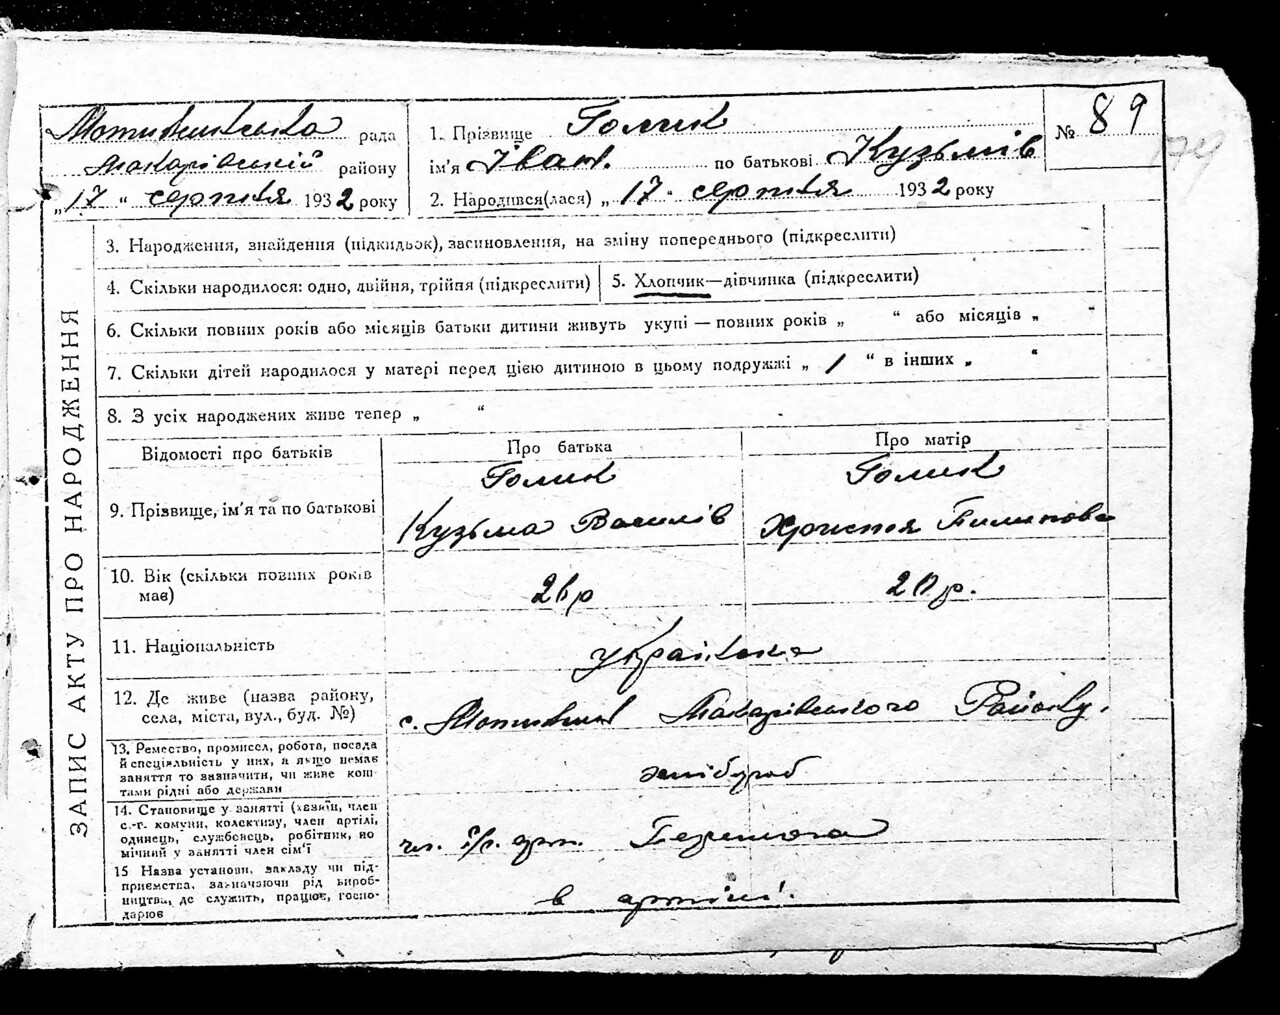 Мотижинська рада
Макарівській району
„17" серпня 1932 року
1. Прізвище Голик
ім'я Іван. по батькові Кузьмів
2. Народився(лася) „17" серпня 1932 року
№ 89
179
ЗАПИС АКТУ ПРО НАРОДЖЕННЯ
3. Народження, знайдення (підкидьок), засиновлення, на зміну попереднього (підкреслити)
4. Скільки народилося: одно, двійня, трійня (підкреслити)
5. Хлопчик—дівчинка (підкреслити)
6. Скільки повних років або місяців батьки дитини живуть укупі — повних років „ " або місяців „ "
7. Скільки дітей народилося у матері перед цією дитиною в цьому подружжі „ 1 " в інших „ "
8. З усіх народжених живе тепер „ "
Відомості про батьків
Про батька
Про матір
9. Прізвище, ім'я та по батькові
Голик
Кузьма Василів
Голик
Христя Пилипова
10. Вік (скільки повних років
має)
26р
20р.
11. Національність
українська
12. Де живе (назва району,
села, міста, вул., буд. №)
с. Мотижин Макарівського Району.
13. Ремество, промисел, робота, посада
й спеціяльність у них, а якщо немає
заняття то зазначити, чи живе кош-
тами рідні або держави
хлібороб
14. Становище у занятті (хазяїн, член
с.-г. комуни, колективу, член артілі,
одинець, службовець, робітник, по
мічний у занятті член сім'ї
чл. с/г. арт.
15 Назва установи, закладу чи під-
приємства, зазначаючи рід вироб-
ництва, де служить, працює, госпо-
дарює
в артілі